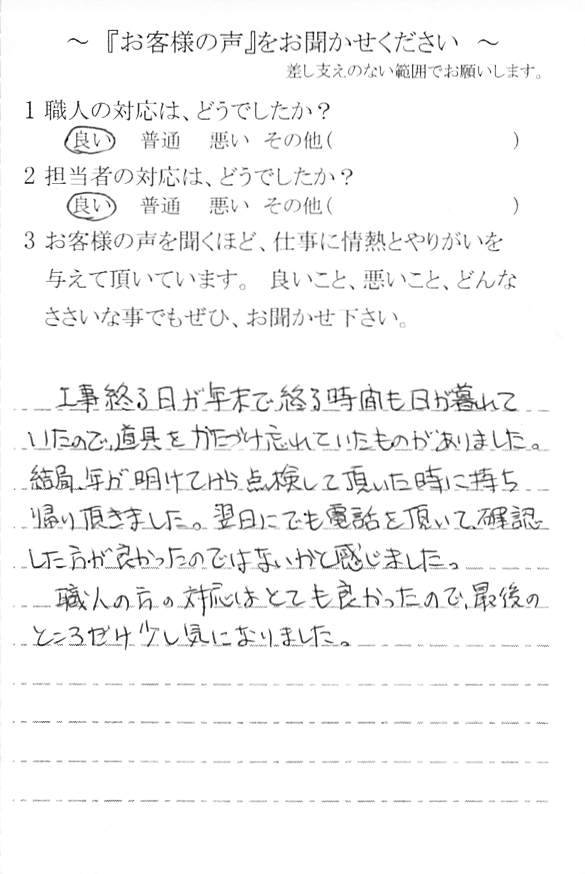 ～ 『お客様の声』をお聞かせください ～
差し支えのない範囲でお願いします。
1 職人の対応は、どうでしたか？
良い 普通 悪い その他( )
2 担当者の対応は、どうでしたか？
良い 普通 悪い その他( )
3 お客様の声を聞くほど、仕事に情熱とやりがいを
与えて頂いています。 良いこと、悪いこと、どんな
ささいな事でもぜひ、お聞かせ下さい。
工事終る日が年末で、終る時間も日が暮れて
いたので、道具をかたづけ忘れていたものがありました。
結局、年が明けてから点検して頂いた時に持ち
帰り頂きました。翌日にでも電話を頂いて、確認
した方が良かったのではないかと感じました。
職人の方の対応はとても良かったので、最後の
ところだけ少し気になりました。